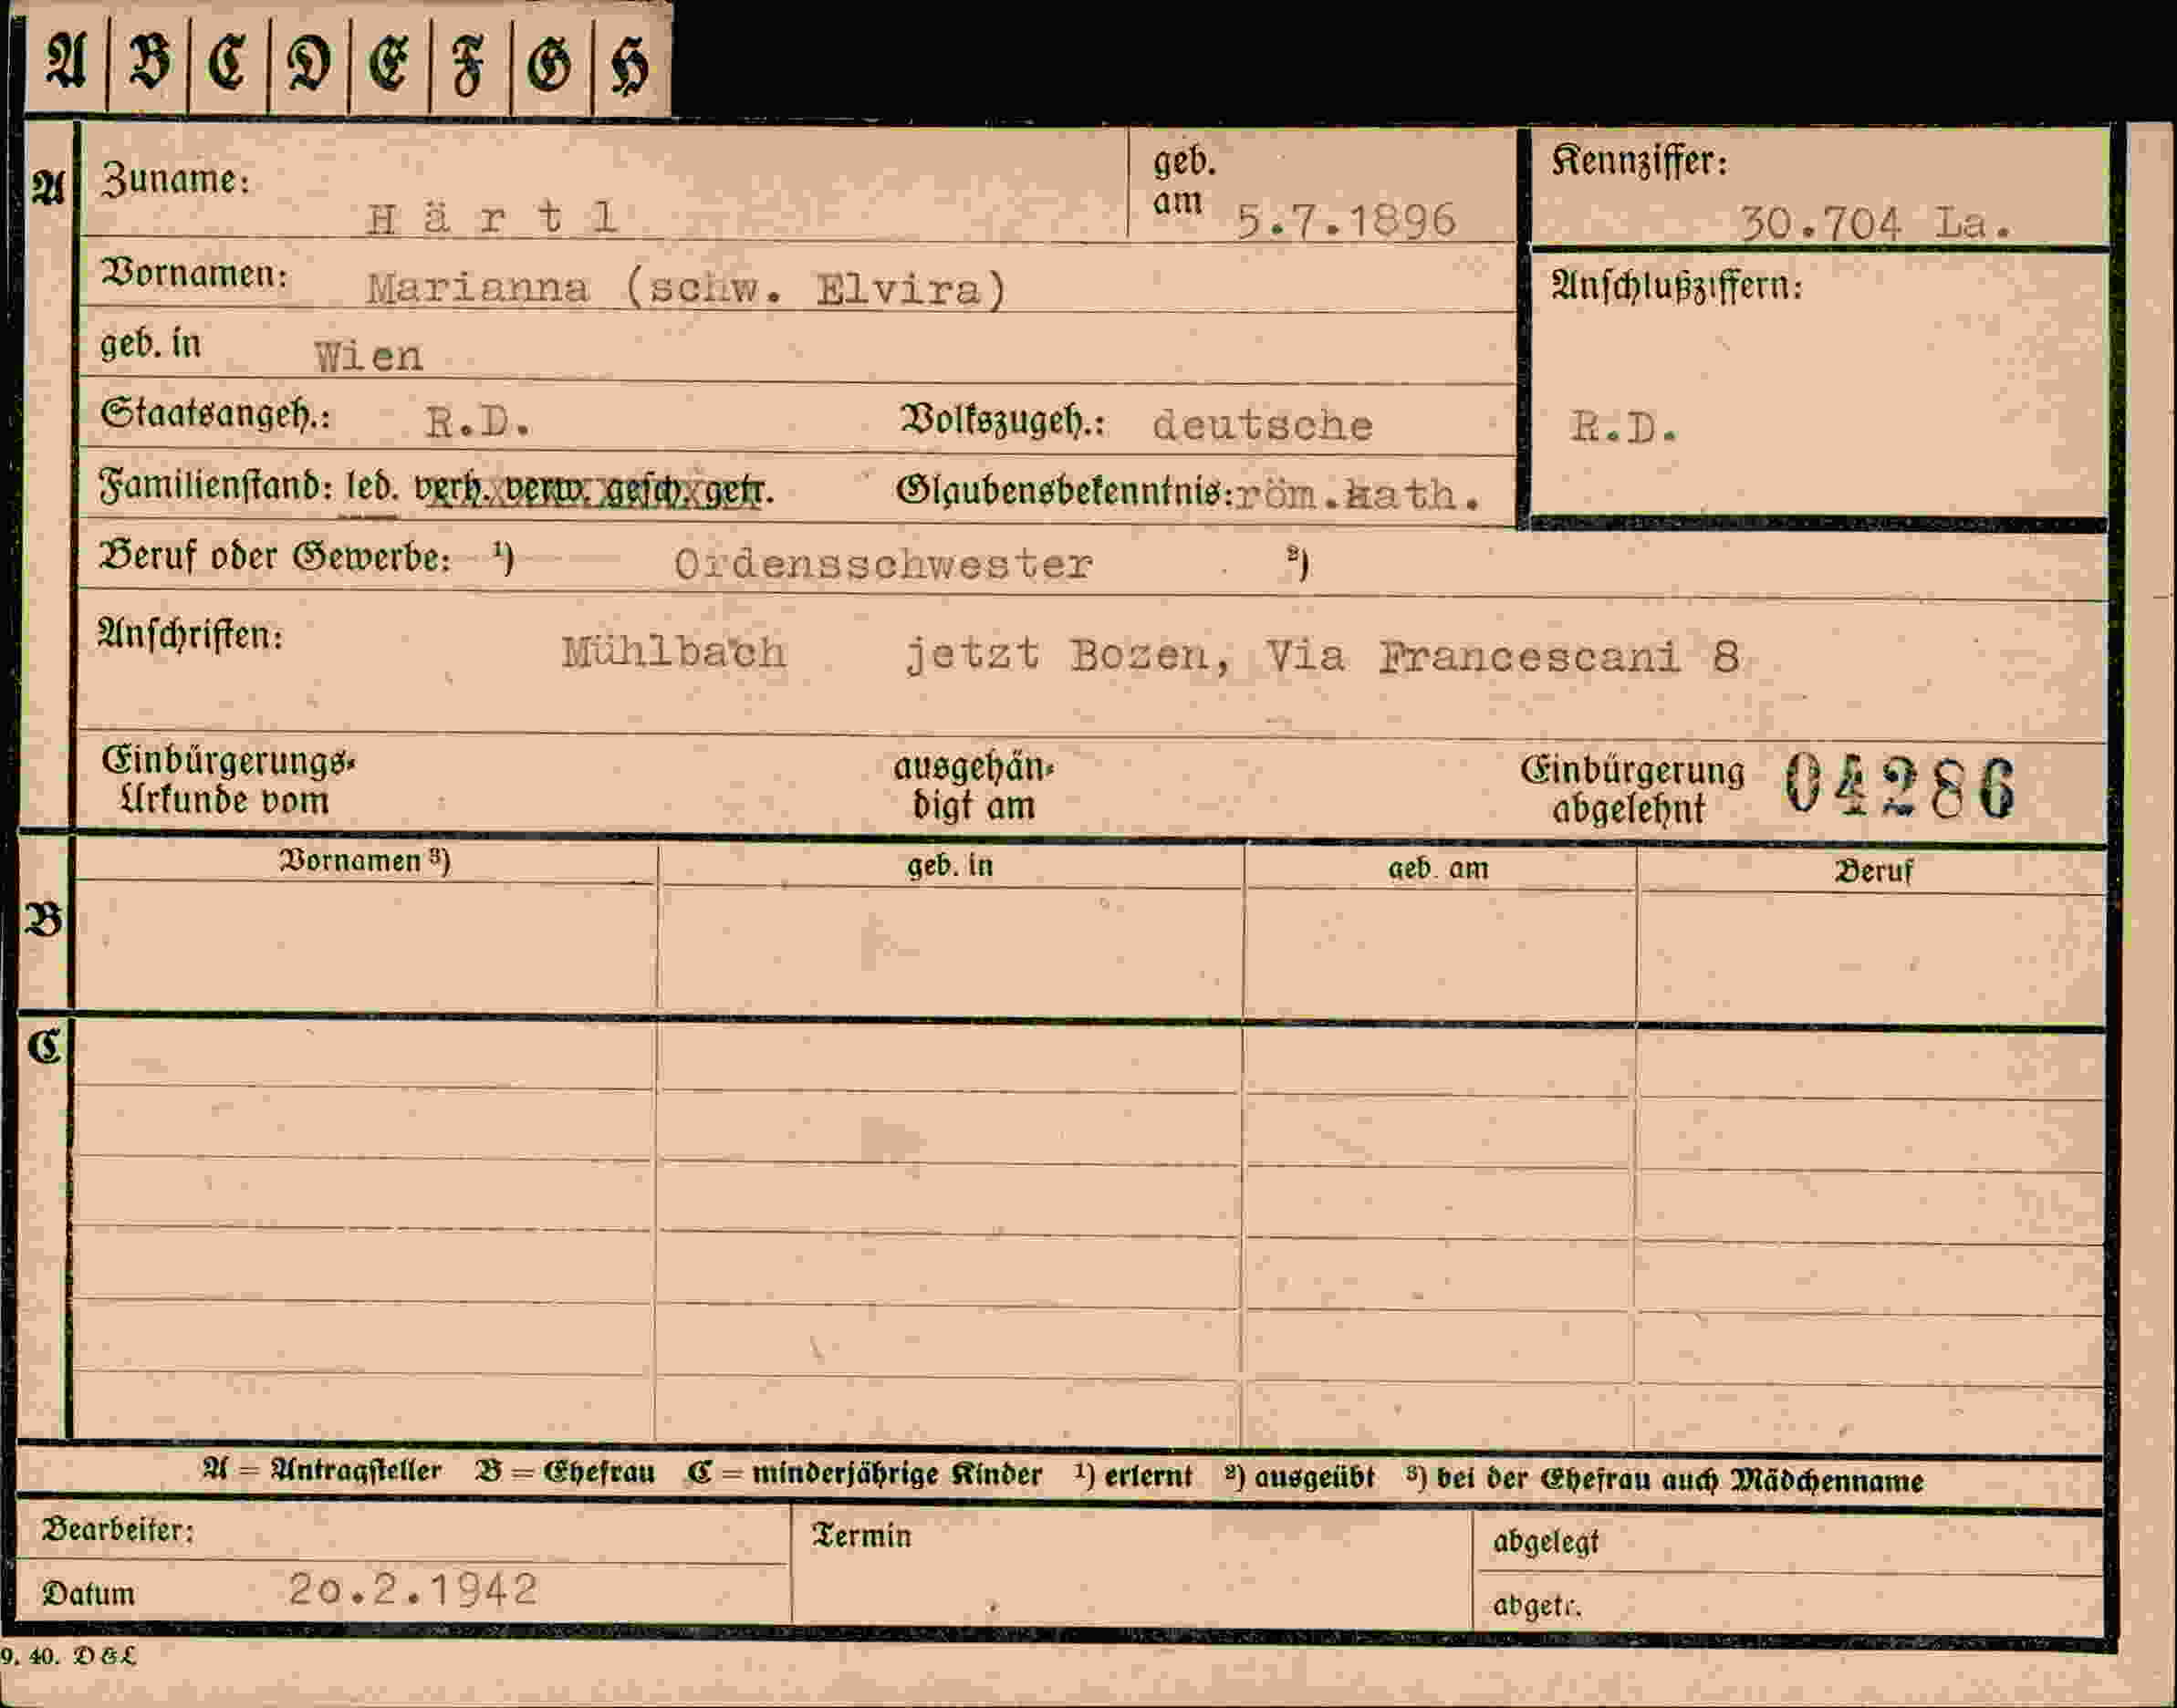 A B C D E F G H
A Zuname: Härtl geb. am 5.7.1896 Kennziffer: 30.704 La.
Vornamen: Marianna (schw. Elvira) Anschlußziffern:
geb. in Wien
Staatsangeh.: R.D. Volkszugeh.: deutsche R.D.
Familienstand: led. verh. verw. gesch. getr. Glaubensbekenntnis: röm.kath.
Beruf oder Gewerbe: ¹) Ordensschwester ²)
Anschriften: Mühlbach jetzt Bozen, Via Francescani 8
Einbürgerungs- ausgehän- Einbürgerung 04286
Urkunde vom digt am abgelehnt
Vornamen ³) geb. in geb. am Beruf
B
C
A = Antragsteller B = Ehefrau C = minderjährige Kinder ¹) erlernt ²) ausgeübt ³) bei der Ehefrau auch Mädchenname
Bearbeiter: Termin abgelegt
Datum 20.2.1942 abgetr.
9. 40. D & L